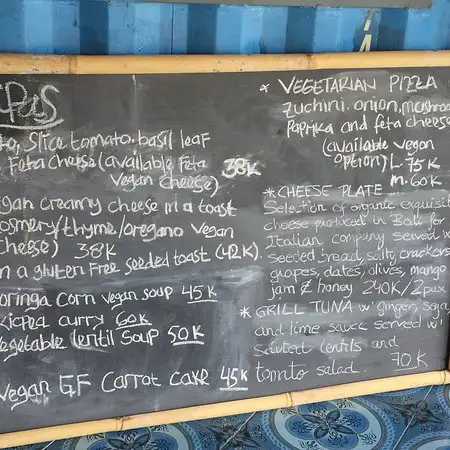 Slice tomato. basil leaf
Feta cheese (available Feta 38K
Vegan cheese)
creamy cheese in a toast
/thyme/oregano vegan
cheese) 38K
in a gluten Free seeded toast (42K).
oringa corn vegan soup 45K
curry 60K
vegetable lentil soup 50K
Vegan GF Carrot cake 45K
VEGETARIAN PIZZA
Zuchini. onion, mushroo
Paprika and feta cheese
(available vegan
option) L. 75K
M. 60K
* CHEESE PLATE
Selection of organic exquisit
cheese produced in Bali for
Italian company served w
seeded bread, salty crackers
grapes, dates, olives, mango
jam & honey 240K/2pax
* GRILL TUNA w' ginger, soja
and lime sauce served w'
sauted lentils and
tomato salad. 70K